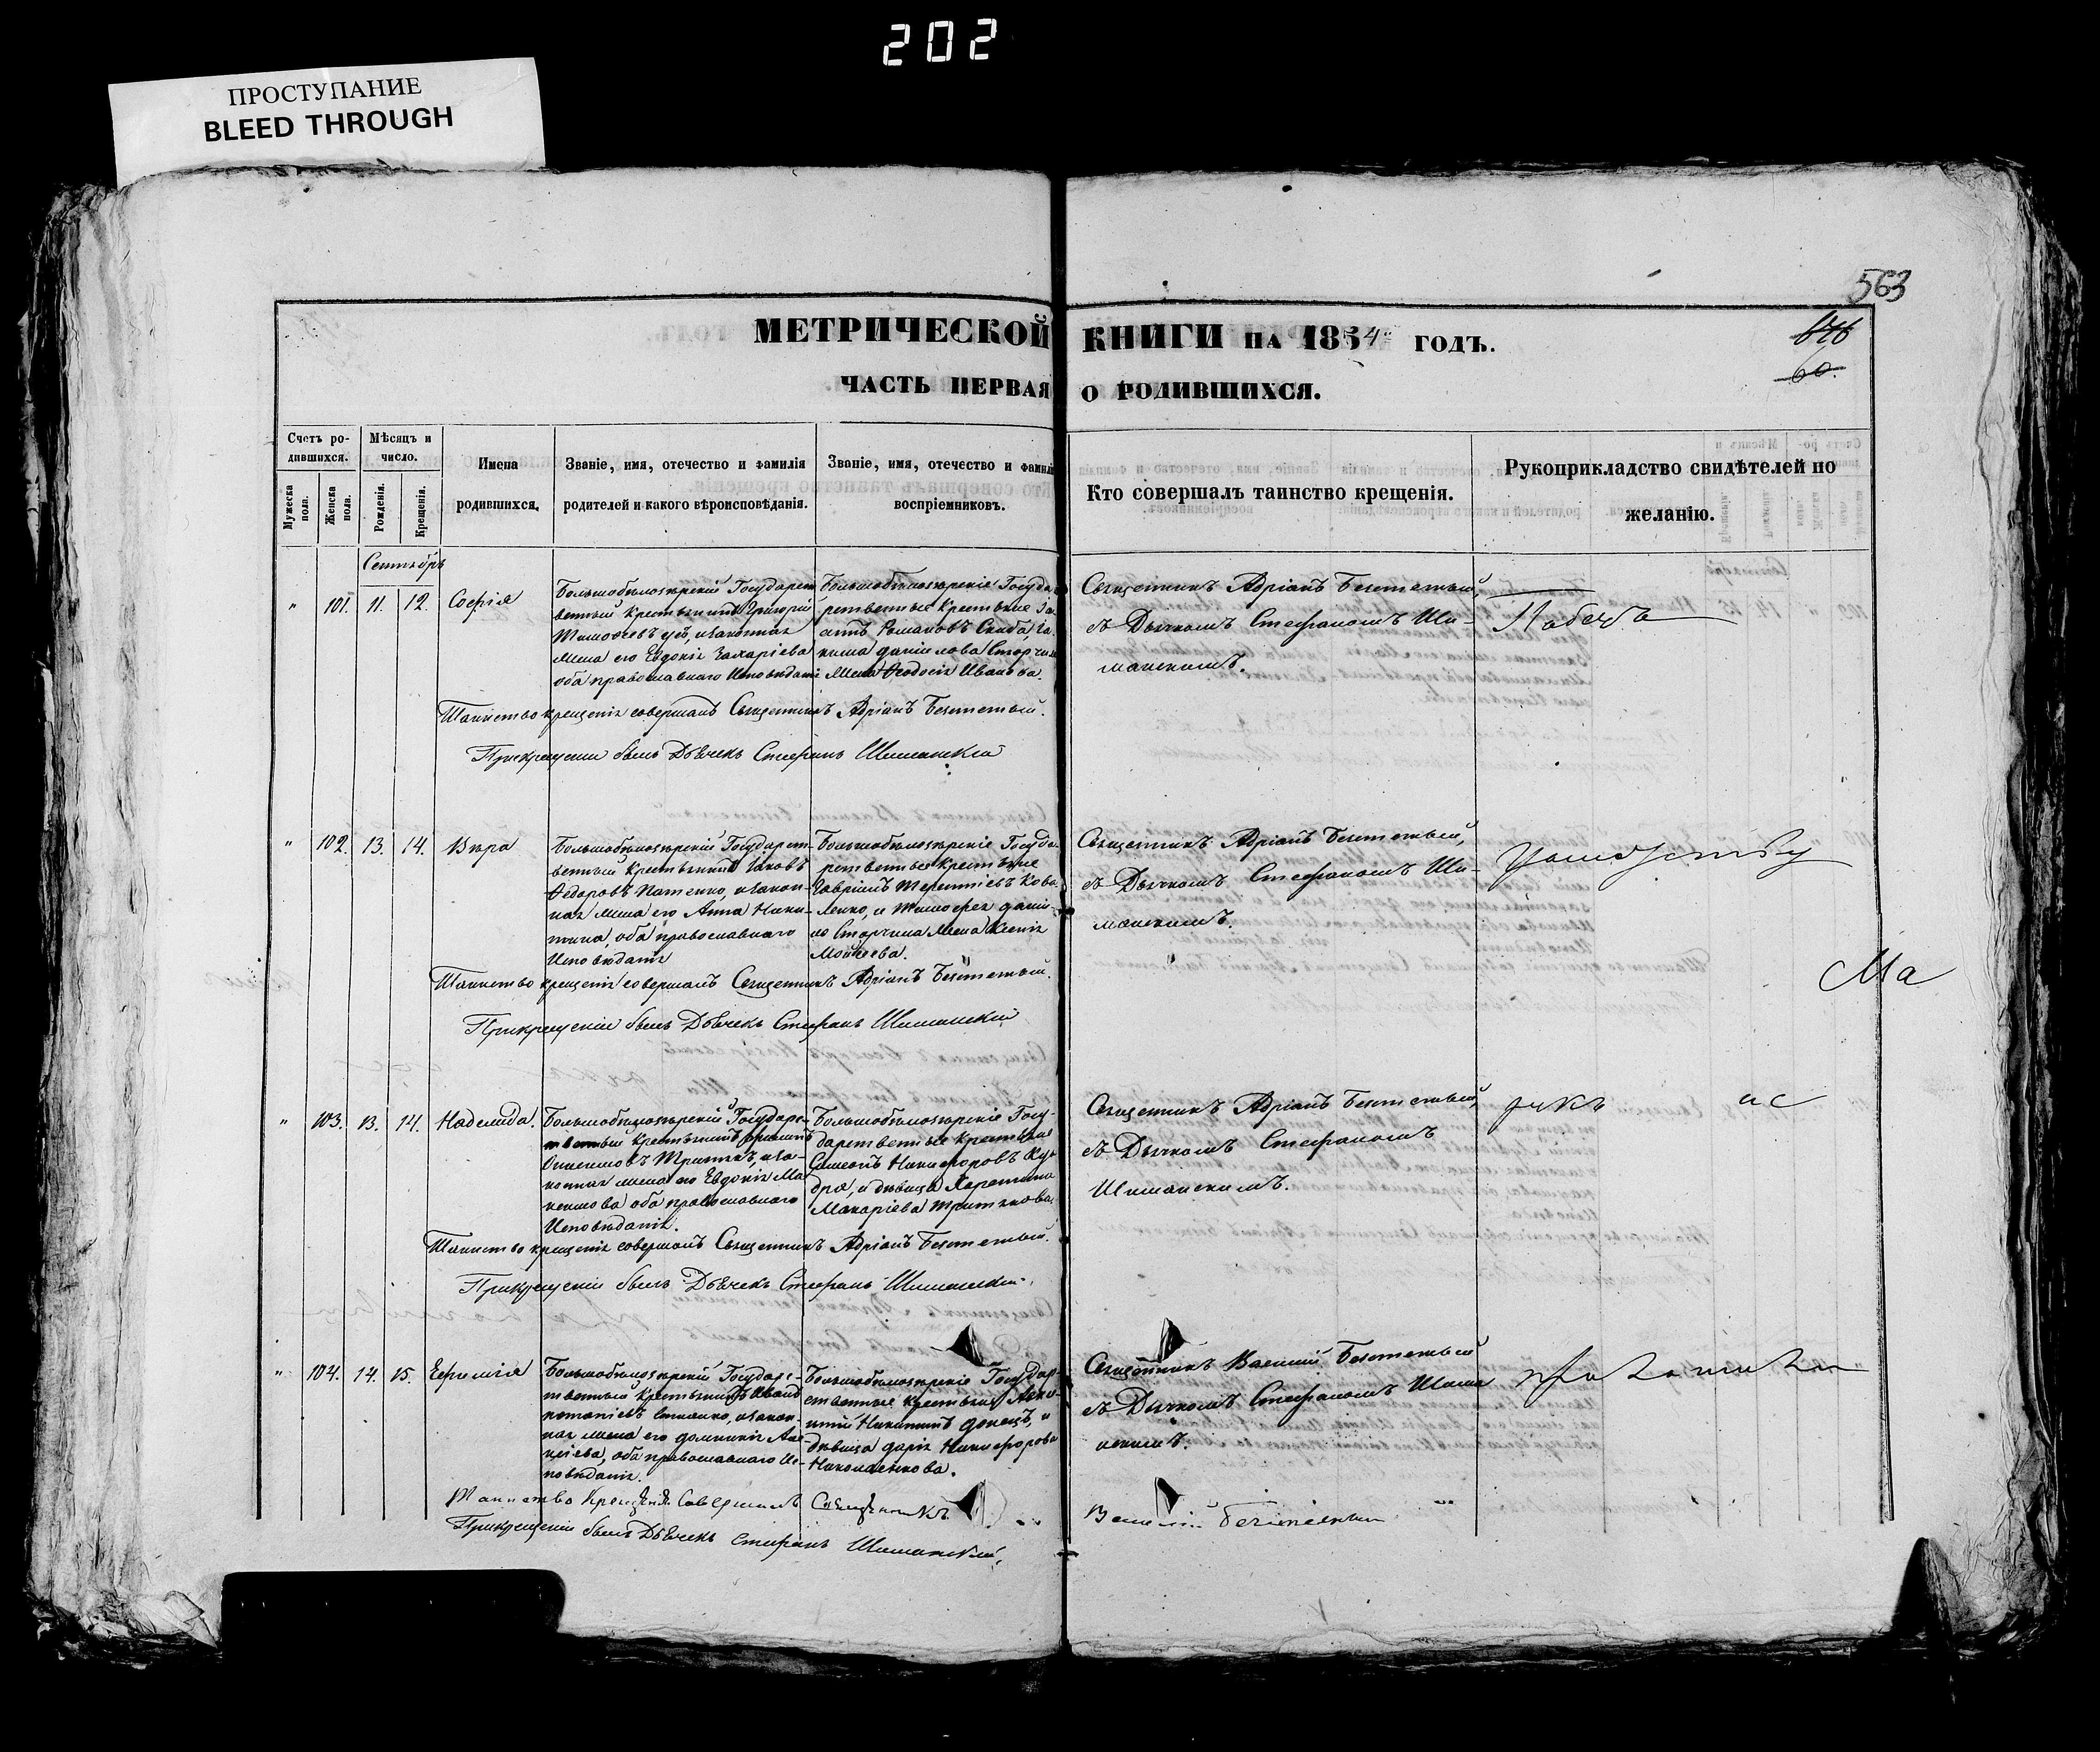 202
ПРОСТУПАНИЕ
BLEED THROUGH
563
МЕТРИЧЕСКОЙ КНИГИ НА 1854 ГОДЪ.
60.
ЧАСТЬ ПЕРВАЯ О РОДИВШИХСЯ.
Счетъ ро-
дившихся.
Мужеска пола.
Женска пола.
Мѣсяцъ и
число.
Рожденія.
Крещенія.
Имена
родившихся.
Званіе, имя, отечество и фамилія
родителей и какого вѣроисповѣданія.
Званіе, имя, отечество и фамилія
воспріемниковъ.
Кто совершалъ таинство крещенія.
Рукоприкладство свидѣтелей по
желанію.
Сентябрь
" 101. 11. 12. Софія
Большобѣлозѣрскій Государст
венный крестьянинъ Григорій
Тимофеевъ изаконная
жена его Евдокія Захаріева
оба православнаго Исповѣданія
Большобѣлозѣрскіе Госуда
рственные крестьяне
Романовъ Скиба,
кима данилова
жена Феодосія Иванова.
Священникъ Адріанъ Безсметный,
съ Дьячкомъ Стефаномъ Ши-
манскимъ.
Таинство крещенія совершалъ Священникъ Адріанъ Безсметный.
Прикрещеніи былъ Дьячекъ Стефанъ Шиманскій
" 102. 13. 14. Вѣра
Большобѣлозѣрскій Государст-
венный крестьянинъ Іаковъ
Федоровъ Патенко, изакон-
ная жена его Анна Ники-
тина, оба православнаго
Исповѣданія
Большобѣлозѣрскіе Госуда
рственные крестьяне
Гавріилъ Терентіевъ Кова
ленко, и Тимофея дани-
ло Сторчина жена Ксенія
Мойсеева.
Священникъ Адріанъ Безсметный,
съ Дьячкомъ Стефаномъ Ши-
манскимъ.
Таинство крещенія совершалъ Священникъ Адріанъ Безсметный.
Прикрещеніи былъ Дьячекъ Стефанъ Шиманскій
Ма
" 103. 13. 14. Надежда.
Большобѣлозѣрскій Государс-
твенный крестьянинъ Филипъ
Онисимовъ Тритякъ, иза-
конная жена его Евдокія Ма
ксимова оба православнаго
Исповѣданія.
Большобѣлозѣрскіе Госу-
дарственные крестьяне
Симеонъ Никифоровъ
дра, и дѣвица Харетина
Макаріева Тритякова.
Священникъ Адріанъ Безсметный,
съ Дьячкомъ Стефаномъ
Шиманскимъ.
Таинство крещенія совершалъ Священникъ Адріанъ Безсметный.
Прикрещеніи былъ Дьячекъ Стефанъ Шиманскій.
" 104. 14. 15. Ефимія
Большобѣлозѣрскій Государс-
твенный крестьянинъ Иванъ
изакон-
ная жена его домникія Але-
ксіева, оба православнаго Ис-
повѣданія.
Большобѣлозѣрскіе Государ
ственные крестьяне
Никитинъ донецъ, и
дѣвица дарія Никифорова
Николаенкова.
Священникъ Василій Безсметный
съ Дьячкомъ Стефаномъ Шима
нскимъ.
Таинство Крещенія Совершалъ Священникъ Василій Безсметный
Прикрещеніи былъ Дьячекъ Стефанъ Шиманскій.